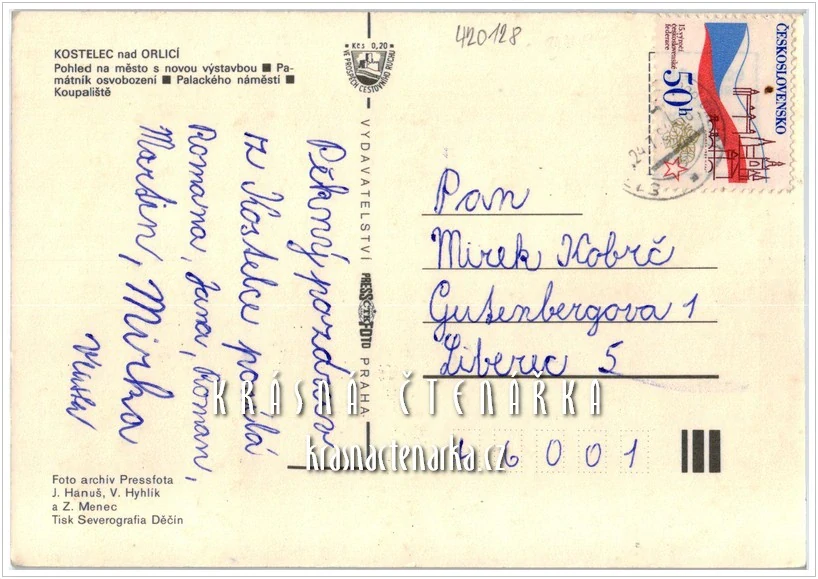 KOSTELEC nad ORLICÍ
Pohled na město s novou výstavbou ■ Pa-
mátník osvobození ■ Palackého náměstí ■
Koupaliště
Pěkný pozdrav
z Kostelce posílá
Romana, Jana, Roman,
Martin, Mirka
Foto archív Pressfota
J. Hanuš, V. Hyhlík
a Z. Menec
Tisk Severografia Děčín
Kčs 0,20
VE PROSPĚCH CESTOVNÍHO RUCHU
VYDAVATELSTVÍ PRESSFOTO PRAHA
ČTK
420128
ČESKOSLOVENSKO
50h
15. výročí
československé
federace
Pan
Mirek Kobrč
Gutenbergova 1
Liberec 5
46001
KRÁSNÁ ČTENÁŘKA
krasnactenarka.cz